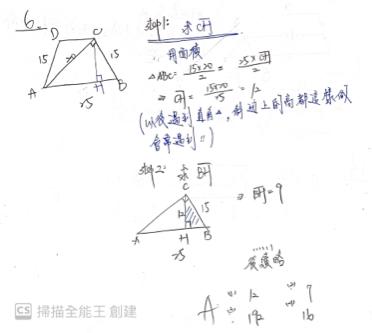 6.
D
C
15
20
15
A
H
B
25
step1: 求 CH
用面積
△ABC = 15×20/2 = 25×CH/2
⇒ CH = 15×20/25 = 12
(以後遇到直角△, 斜邊上的高都這樣做
會常遇到!!)
step2: 求 BH
C
12
15
A
H
B
25
⇒ BH = 9
後續略
A
12
9
192
16
CS 掃描全能王 創建